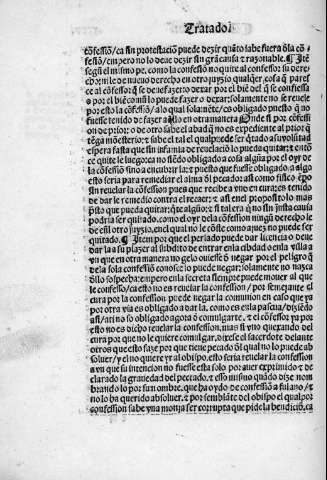 Tratado
cõfessiõ/ca sin protestaciõ puede dezir quãto sabe fuera dla cõ-
fessiõ/empero no lo deue dezir sin grã causa z razonable. ¶ Itē
segũ el mismo pe. como la confessiõ no quite al confessor su dere-
cho: ni le de nueuo derecho en otro juyzio qualq̃er, cosa q̃ pares-
ce al cõfessor q̃ se deue fazer o dexar por el biē del q̃ se confiessa
o por el biē comũ lo puede fazer o dexar: solamente no se reuele
por esto la cõfessiõ/a lo qual solamēte es obligado puesto q̃ no
fuesse tenido de fazer a ello en otra manera Onde si por cõfessi
on de prior: o de otro sabe el abad q̃ no es expediente al prior q̃
tēga monesterio: z sabe el tal el qual puede ser q̃tado a su volũtad
espera fasta que sin infamia de reuelaciõ lo pueda quitar: z enton
ce quite le luego: ca no siēdo obligado a cosa algũa por el oyr de
la cõfessiõ sino a encubrir la: z puesto que fuesse obligado a algo
esto seria para remediar el alma dl pecador: assi como fisico. e pro
sin reuelar la cõfession pues que recibe a vno en cura: es tenido
de dar le remedio contra el recaer: z assi en el proposito lo mas
presto que pueda quitar: q̃te algũo: z si tal era q̃ no sin justa causa
podria ser quitado. como dla cõfessiõ ningũ derecho le
de en el otro juyzio, en el qual no le cõste como ajuez no puede ser
quitado. ¶ Item por que el perlado puede dar licencia o deue
dar la a su plazer al subdito de entrar en la cibdad o en la villa a
vn que en otra manera no gelo ouiesse d negar por el peligro q̃
de la sola confessiõ conosce lo puede negar: solamente no nazca
dllo sospecha: empero en lo secreto siempre puede mouer al que
se confiesso/ca esto no es reuelar la confession/por semejante el
cura por la confession puede negar la comunion en caso que ya
por otra via es obligado a dar la. como es en la pascua/diziēdo
assi/a ti no so obligado agora d comulgarte. z el cõfessor ya por
esto no es dicho reuelar la confession. mas si vno quexando del
cura por que no le quiere comulgar. dixesse el sacerdote delante
otros que esto faze por que tiene pecado dl qual no lo puede ab
soluer/y el no quiere yr al obispo. esto seria reuelar la confession
a vn que su intencion no fuesse esta solo por auer exprimido z de
clarado la grauedad del pecado. z esso mismo quãdo dize nom
brando lo por su nombre. que ha oydo de confessiõ a fulano/z
no lo ha querido absoluer. z por semblãte del obispo el qual por
confession sabe vna monja ser corrupta que pide la bendiciõ. ca